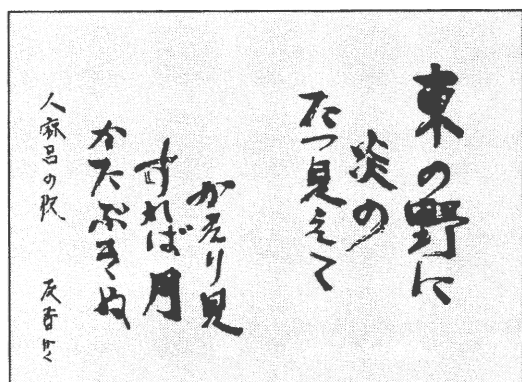 東の野に
炎の
たつ見えて
かえり見
すれば月
かたぶきぬ
人麻呂の歌